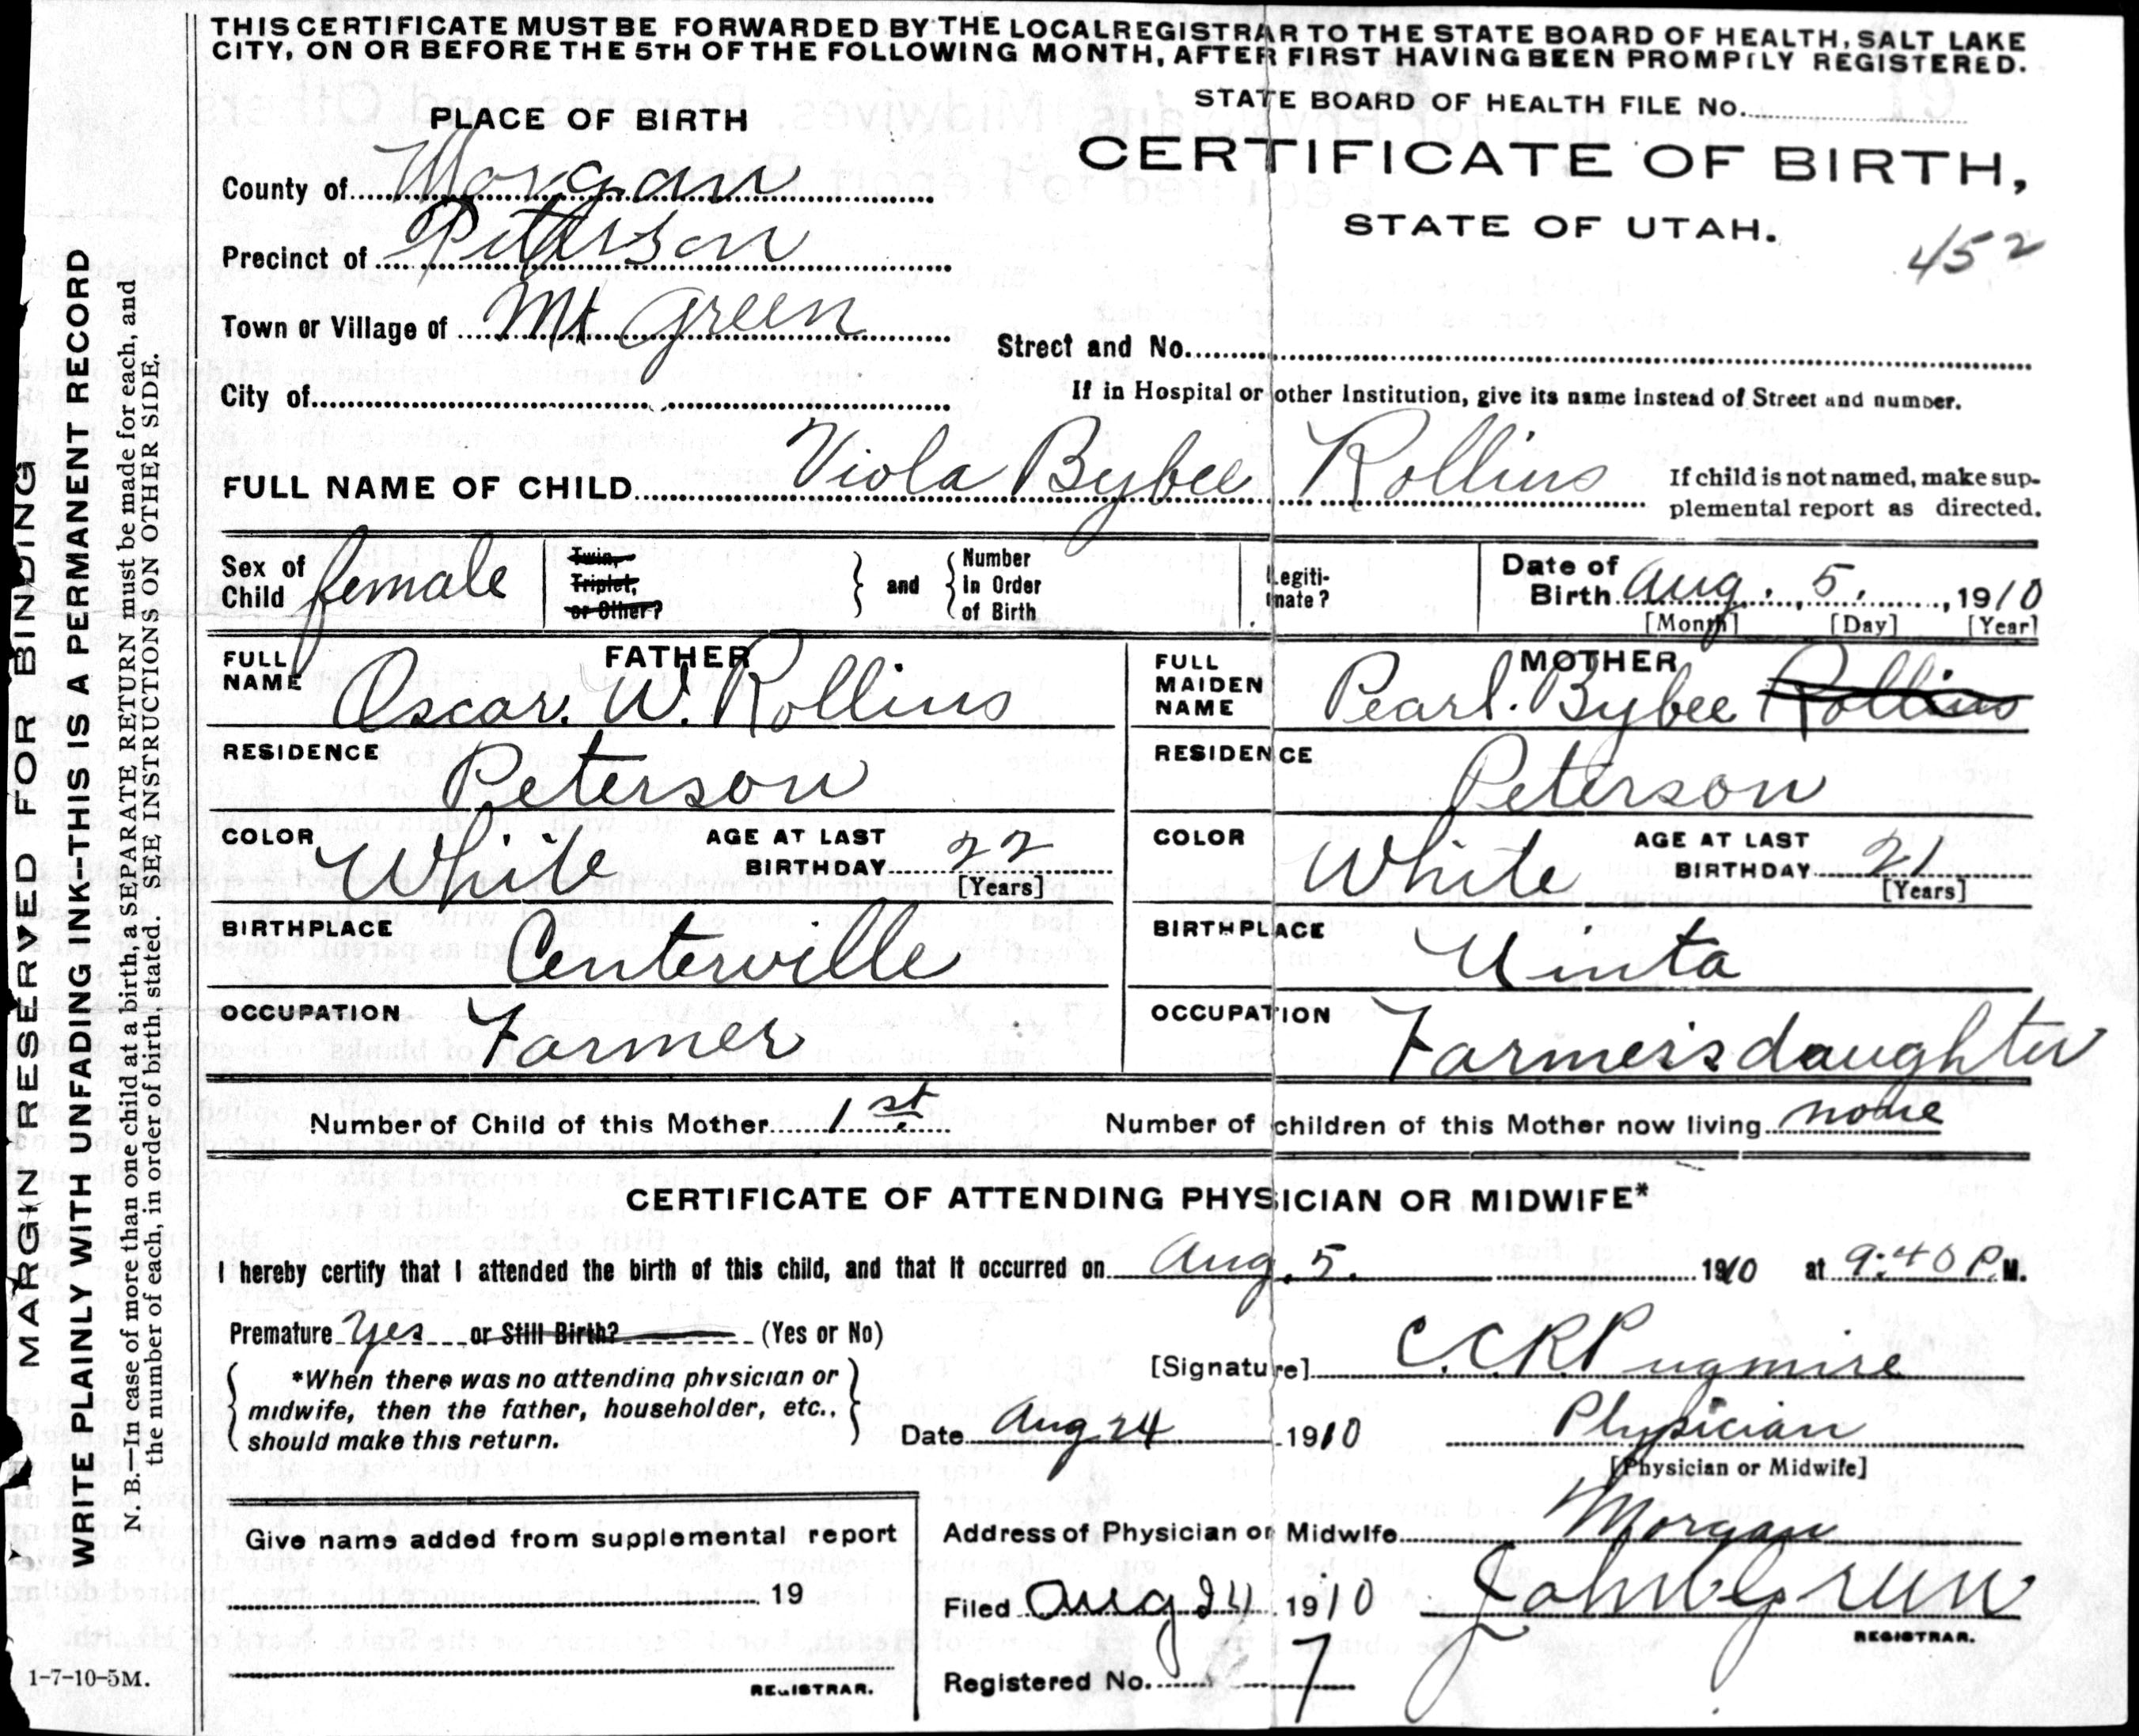 THIS CERTIFICATE MUST BE FORWARDED BY THE LOCAL REGISTRAR TO THE STATE BOARD OF HEALTH, SALT LAKE
CITY, ON OR BEFORE THE 5TH OF THE FOLLOWING MONTH, AFTER FIRST HAVING BEEN PROMPTLY REGISTERED.
STATE BOARD OF HEALTH FILE No.
PLACE OF BIRTH
CERTIFICATE OF BIRTH,
STATE OF UTAH.
452
County of Morgan
Precinct of Peterson
Town or Village of Mt Green
Street and No.
City of
If in Hospital or other Institution, give its name instead of Street and number.
FULL NAME OF CHILD Viola Bybee Rollins
If child is not named, make sup-
plemental report as directed.
Sex of Child female
Twin, Triplet, or Other? and Number in Order of Birth
Legiti-
mate?
Date of Birth Aug. 5. , 1910
[Month] [Day] [Year]
FATHER
FULL NAME Oscar. W. Rollins
RESIDENCE Peterson
COLOR White AGE AT LAST BIRTHDAY 22
[Years]
BIRTHPLACE Centerville
OCCUPATION Farmer
MOTHER
FULL MAIDEN NAME Pearl. Bybee Rollins
RESIDENCE Peterson
COLOR White AGE AT LAST BIRTHDAY 21
[Years]
BIRTHPLACE Uinta
OCCUPATION Farmer's daughter
Number of Child of this Mother 1st. Number of children of this Mother now living none
CERTIFICATE OF ATTENDING PHYSICIAN OR MIDWIFE*
I hereby certify that I attended the birth of this child, and that it occurred on Aug. 5. 1910 at 9:40 P.M.
Premature yes or Still Birth? (Yes or No)
*When there was no attending physician or
midwife, then the father, householder, etc.,
should make this return.
[Signature] C.C.R. Pugmire
Date Aug 24 1910 Physician
[Physician or Midwife]
Address of Physician or Midwife Morgan
Give name added from supplemental report
19
REGISTRAR.
Filed Aug 24 1910 John Green
REGISTRAR.
Registered No. 7
MARGIN RESERVED FOR BINDING
WRITE PLAINLY WITH UNFADING INK-THIS IS A PERMANENT RECORD
N. B.—In case of more than one child at a birth, a SEPARATE RETURN must be made for each, and
the number of each, in order of birth, stated. SEE INSTRUCTIONS ON OTHER SIDE.
1-7-10-5M.